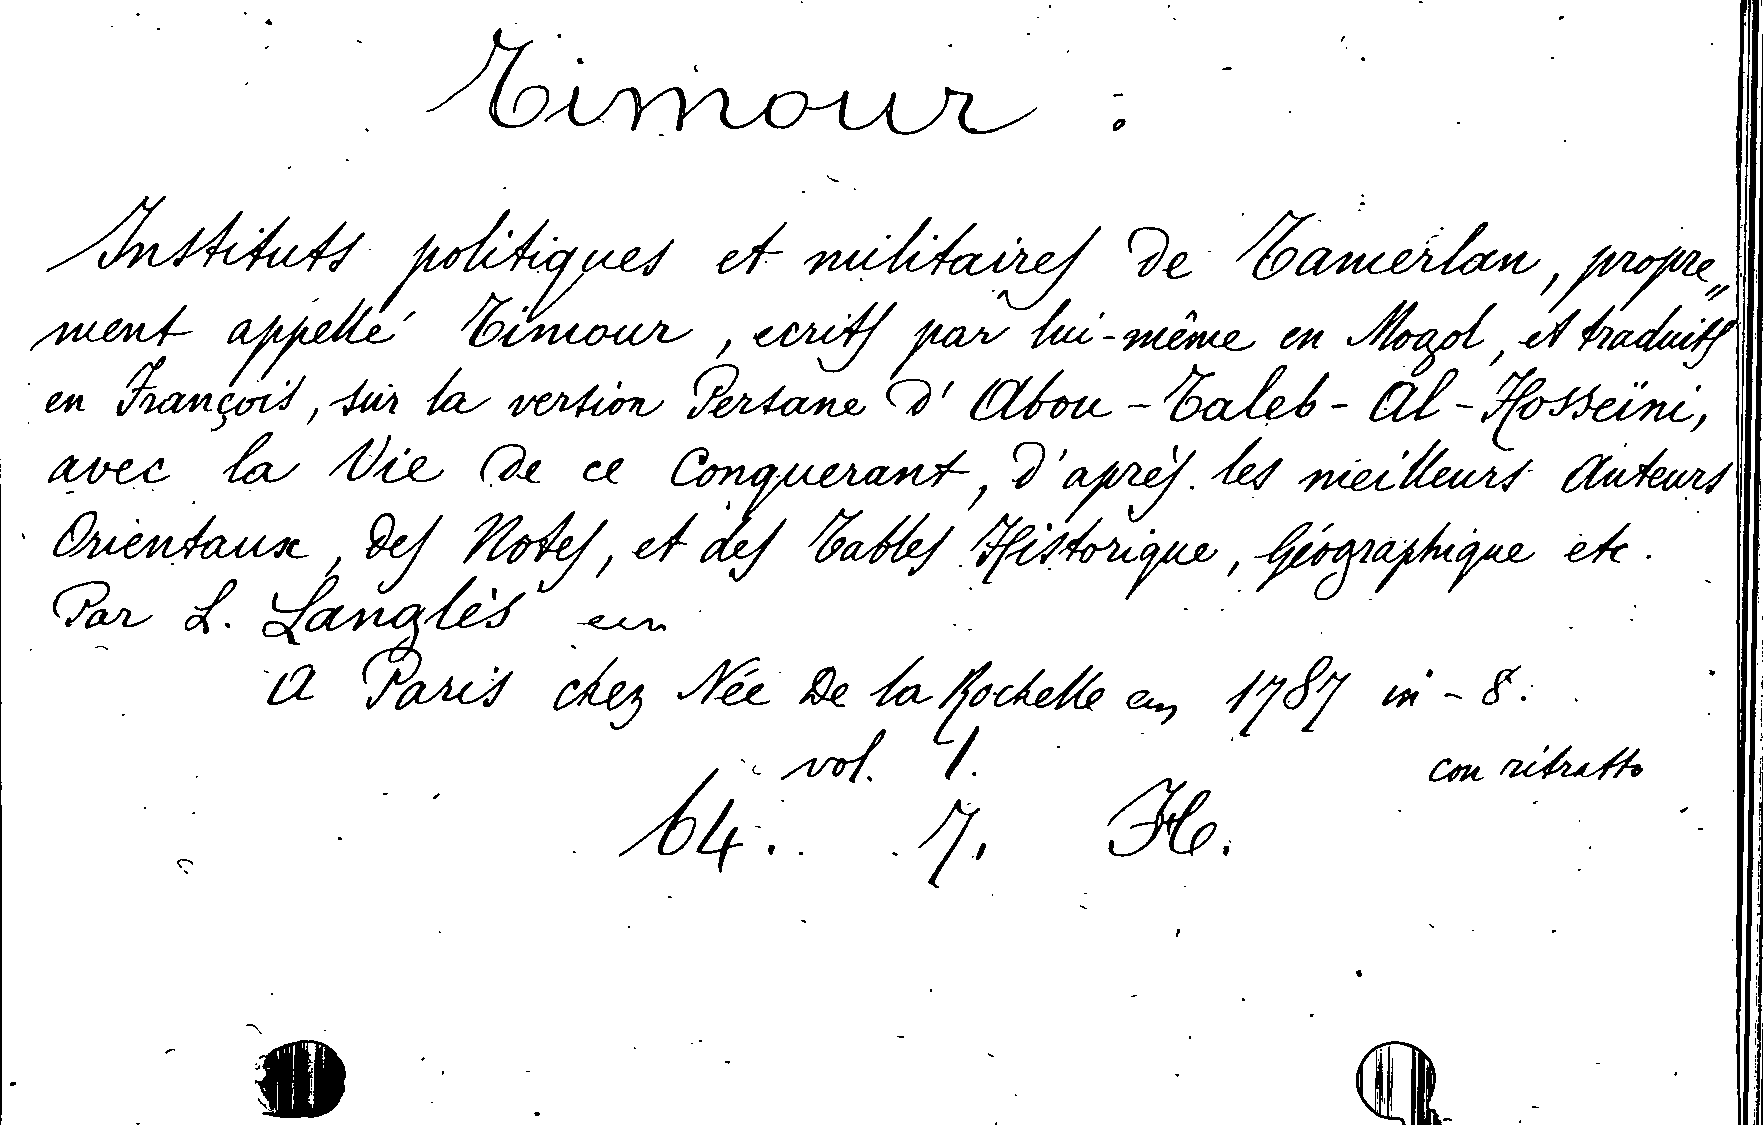 Timour :
Instituts politiques et militaires de Tamerlan, propre„
ment appellé Timour, ecrits par lui-même en Mogol, et traduits
en François, sur la version Persane d' Abou-Taleb-Al-Hosseïni,
avec la Vie de ce Conquerant, d'après les meilleurs Auteurs
Orientaux, des Notes, et des Tables Historique, Géographique etc.
Par L. Langlès
A Paris chez Née De la Rochelle en 1787 in-8.
vol. 1.
con ritratto
64. 7. H.